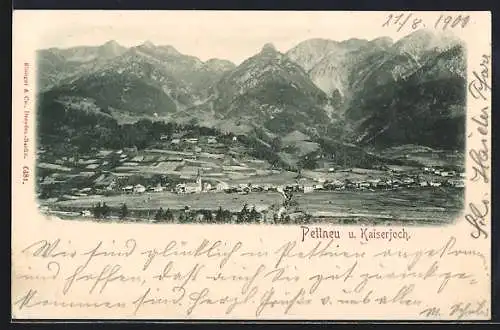 21/8. 1900
Stengel & Co., Dresden-Berlin. 6281.
Pettneu u. Kaiserjoch.
Wir sind glücklich in Pettneu an-
und hoffen, daß auch Sie gut zurück ge-
kommen sind. Herzl. Grüße v. uns allen